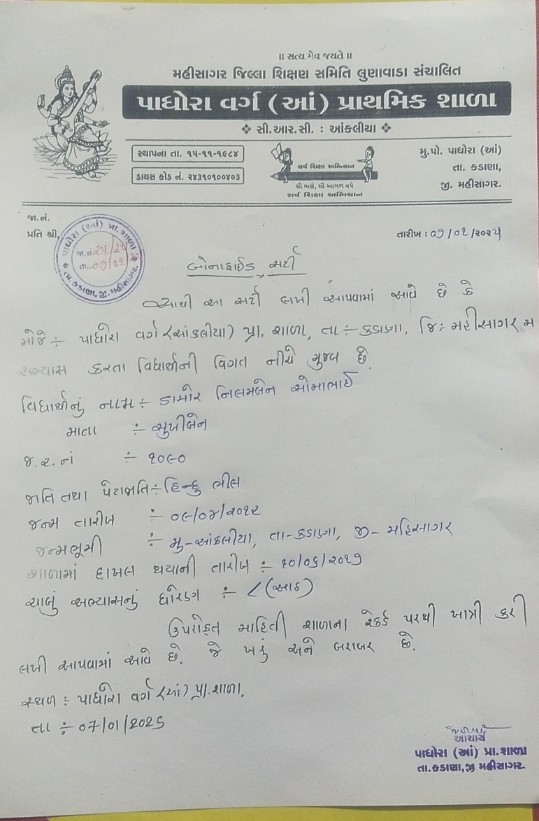 ॥ સત્ય મેવ જયતે ॥
મહીસાગર જિલ્લા શિક્ષણ સમિતિ લુણાવાડા સંચાલિત
પાધોરા વર્ગ (આં) પ્રાથમિક શાળા
❖ સી.આર.સી. : આંકલીયા ❖
સ્થાપના તા. ૧૫-૧૧-૧૯૮૪
ડાયસ કોડ નં. ૨૪૩૧૦૧૦૦૪૦૩
સર્વ શિક્ષા અભિયાન
સૌ ભણે, સૌ આગળ વધે
સર્વ શિક્ષા અભિયાન
મુ.પો. પાધોરા (આં)
તા. કડાણા,
જી. મહીસાગર.
જા.નં.
પ્રતિ શ્રી,
પાધોરા (આં) પ્રા.શાળા
જા.નં.
તા.
તા.કડાણા,જી.મહીસાગર
તારીખ :
બોનાફાઈડ સર્ટી
આથી આ સર્ટી લખી આપવામાં આવે છે કે
મોજે ÷ પાધોરા વર્ગ (આંકલીયા) પ્રા. શાળા, તા ÷ કડાણા, જિ: મહીસાગર મ
અભ્યાસ કરતા વિદ્યાર્થીની વિગત નીચે મુજબ છે.
વિદ્યાર્થીનું નામ ÷ ડામોર નિલમબેન સોમાભાઈ
માતા ÷ સુખીબેન
જ.ર.નં ÷ ૧૦૯૦
જાતિ તથા પેટાજાતિ ÷ હિન્દુ ભીલ
જન્મ તારીખ ÷ ૦૯/૦૪/૨૦૧૨
જન્મભૂમી ÷ મુ-આંકલીયા, તા-કડાણા, જી- મહિસાગર
શાળામાં દાખલ થયાની તારીખ ÷ ૧૦/૦૬/૨૦૧૭
ચાલું અભ્યાસનું ધોરણ ÷ ૮ (આઠ)
ઉપરોક્ત માહિતી શાળાના રેકર્ડ પરથી ખાત્રી કરી
લખી આપવામાં આવે છે. જે ખરું અને બરાબર છે.
સ્થળ : પાધોરા વર્ગ (આં) પ્રા.શાળા.
તા ÷ 07/01/2026
આચાર્ય
પાધોરા (આં) પ્રા.શાળા
તા.કડાણા,જી મહીસાગર.